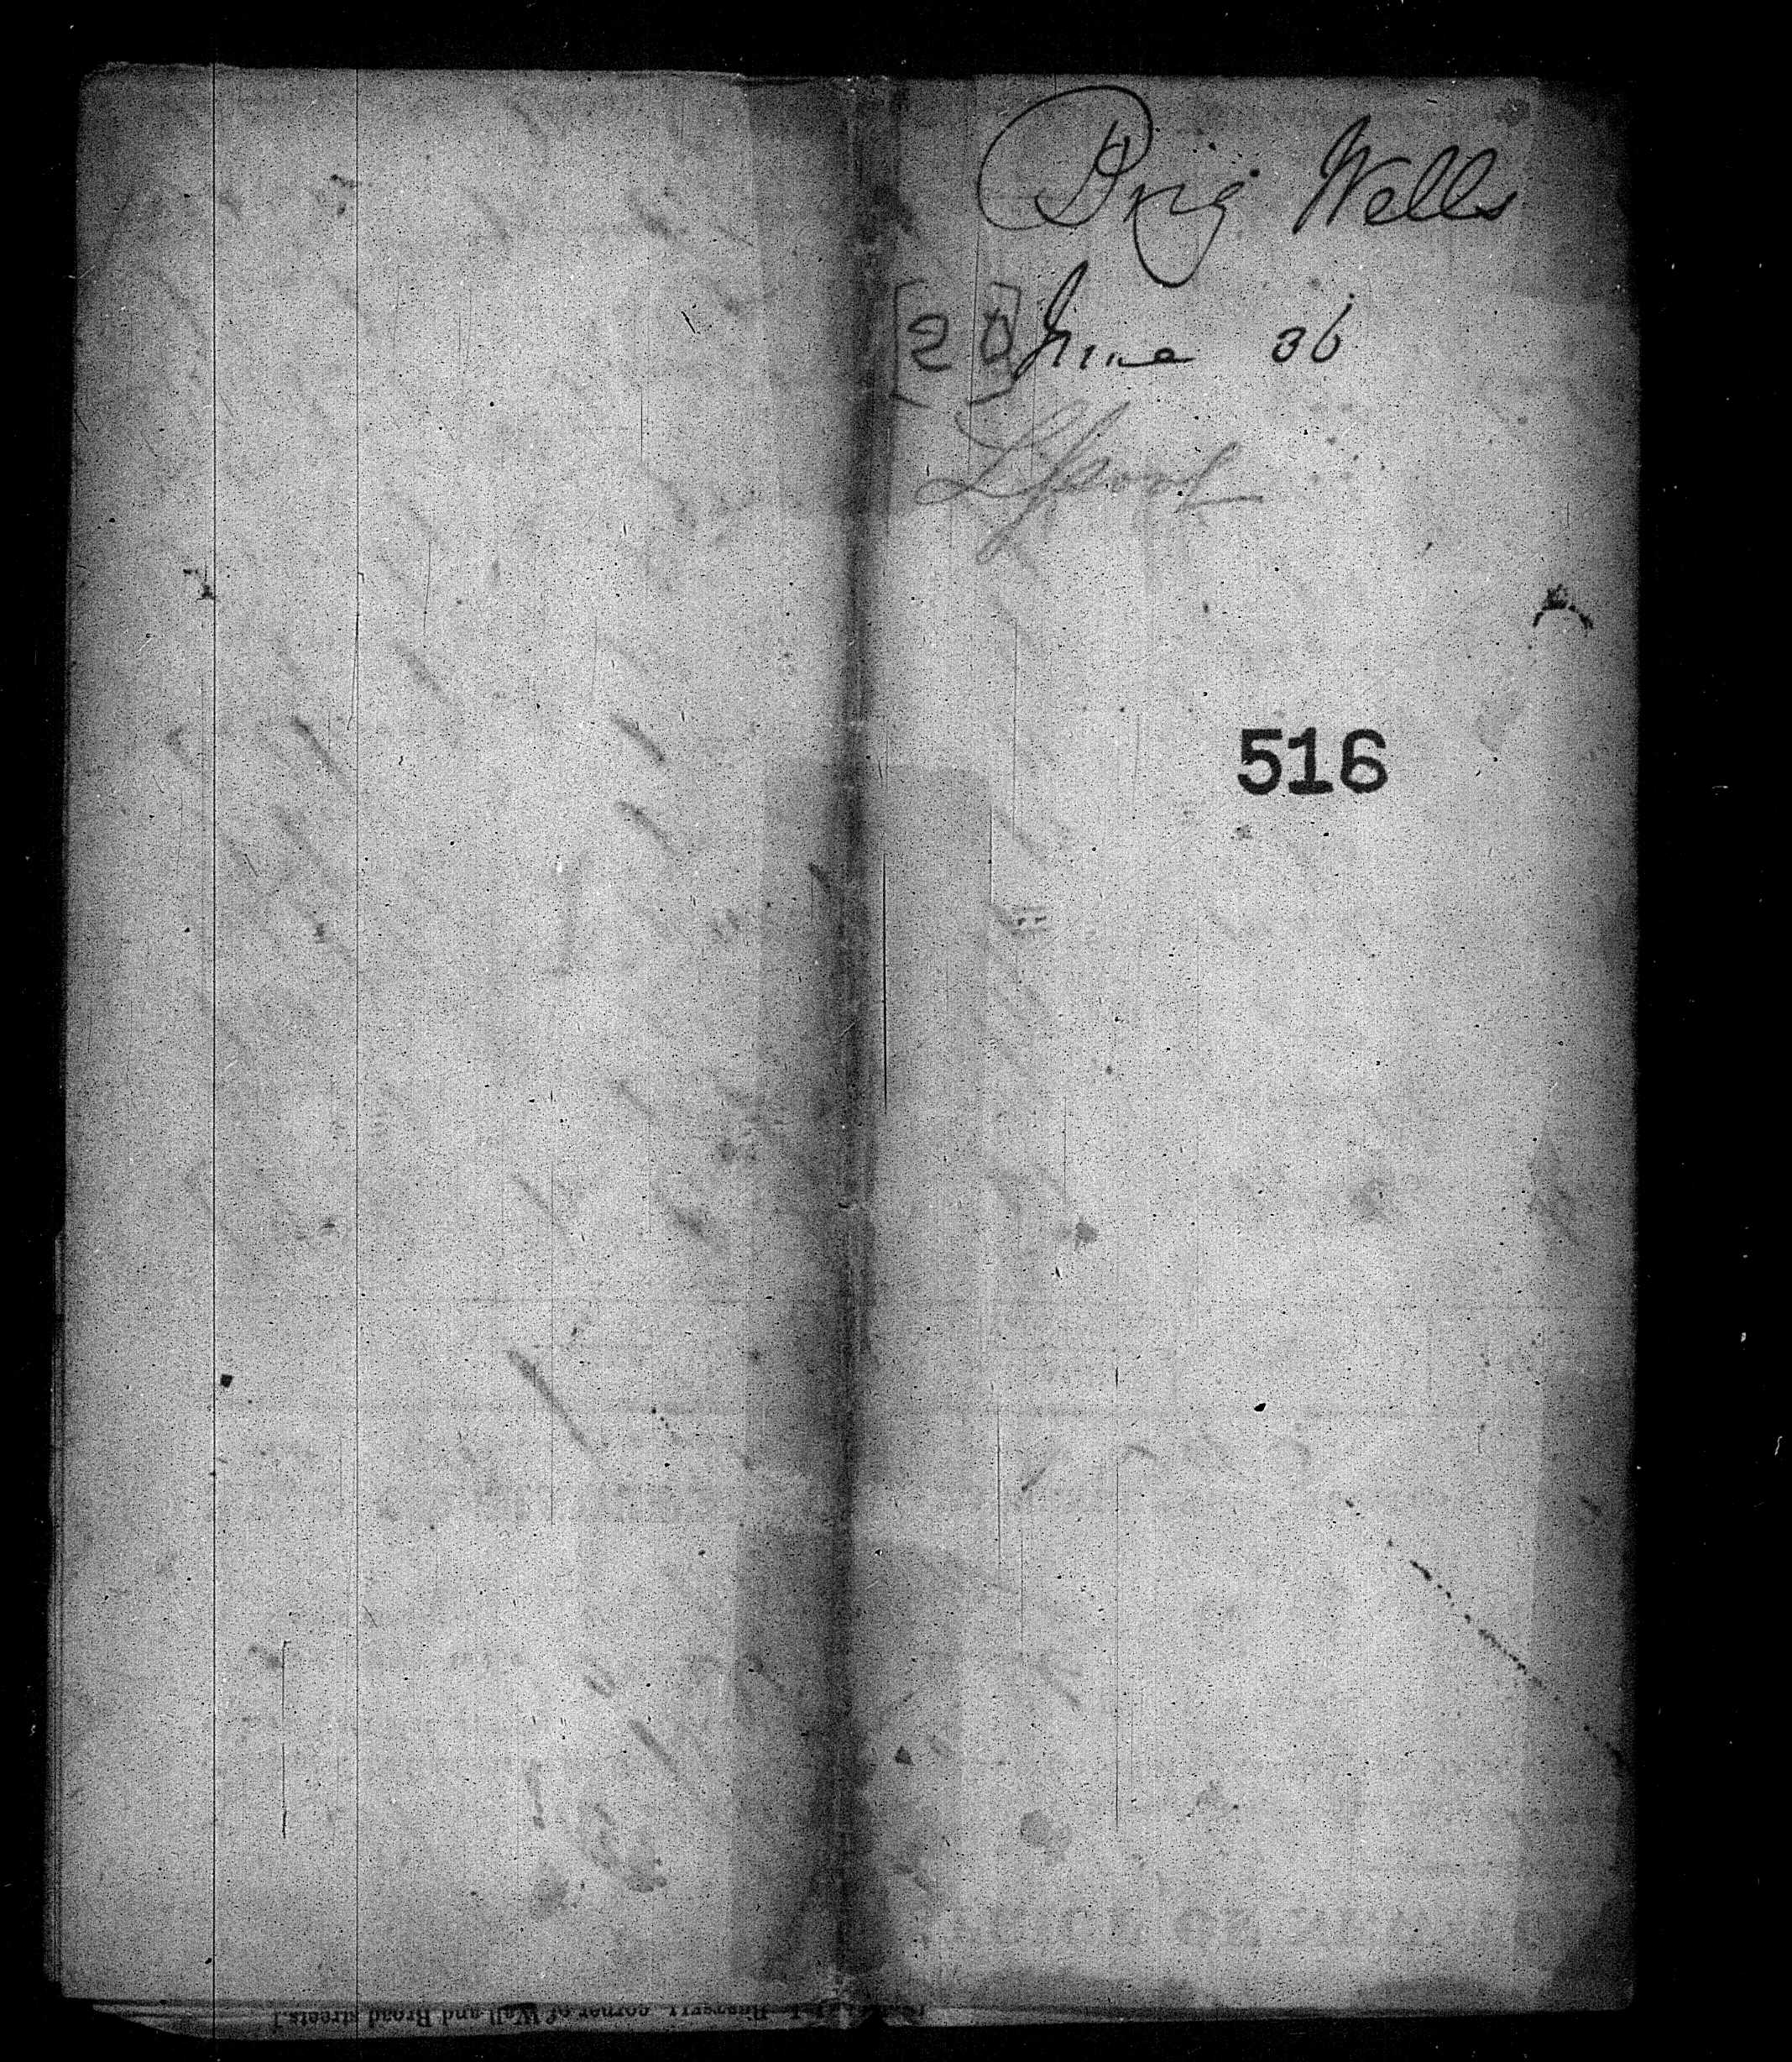 Brig Wells
[20] June 36
Lpool
516
corner of Wall and Broad streets.]